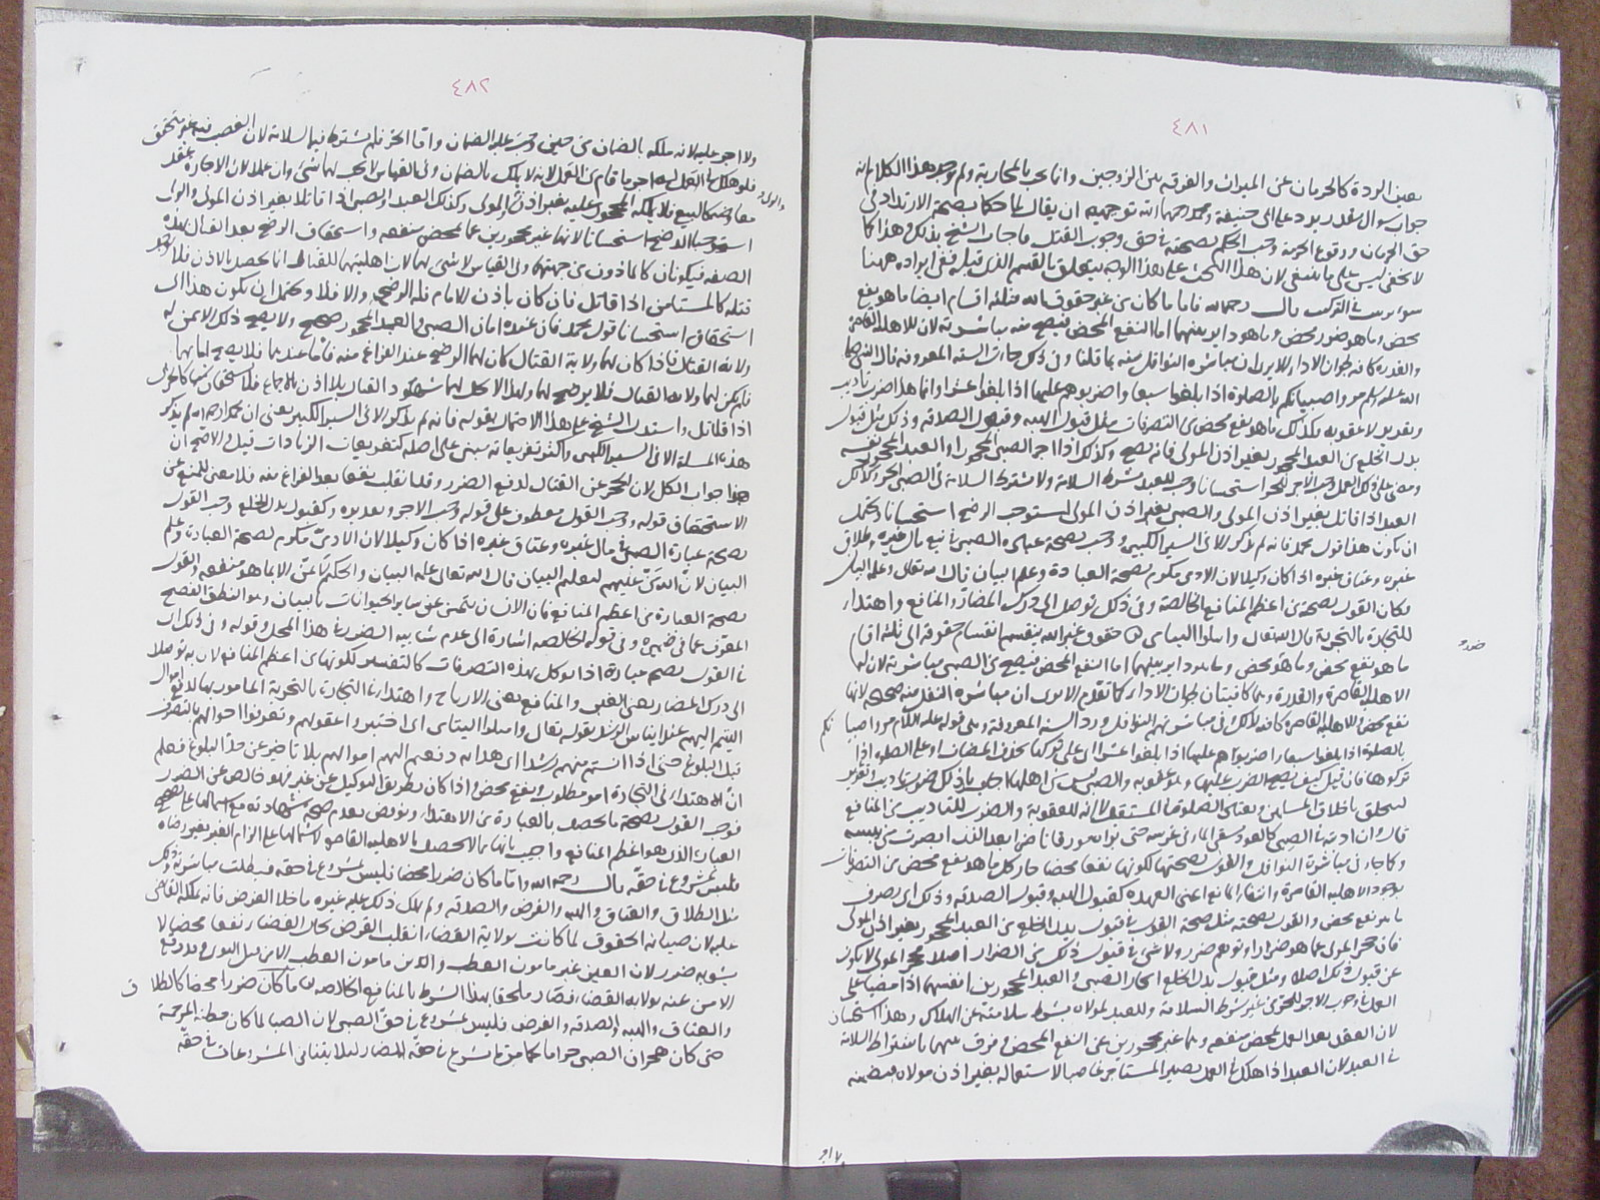 ٤٨١
بعين الردة كالحرمان عن الميراث والفرقة بين الزوجين وانما يجب بالمحاربة ولم يوجد هذا الكلام انه
جواب سؤال مقدر يرد على ابى حنيفة ومحمد رحمهما الله توجيهه ان يقال لما حكما بصحة الارتداد فى
حق الحرمان ووقوع الحرمة وجب الحكم بصحته فى حق وجوب القتل فاجاب الشيخ بذلك وهذا كما
لا يخفى ليس على ما ينبغى لان هذا البحث على هذا الوجه يتعلق بالقسم الذى قبله فنفى ايراده ههنا
سوء ترتيب فى التركيب قال رحمه الله فاما ما كان من غير حقوق الله فثلثة اقسام ايضا ما هو نفع
محض وما هو ضرر محض وما هو دائر بينهما اما النفع المحض فيصح منه مباشرته لان للاهلية القاصرة
والقدرة كافية لجواز الاداء الا يرى ان مباشرة النوافل منه بما قلنا وفى ذلك جاءت السنة المعروفة قال النبى صلى
الله عليه وسلم مروا صبيانكم بالصلوة اذا بلغوا سبعا واضربوهم عليها اذا بلغوا عشرا وانما هذا ضرب تأديب
وتعزير لا عقوبة فكذلك ما هو نفع محض من التصرفات مثل قبول الهبة وقبول الصدقة وذلك مثل قبول
بدل الخلع من العبد المحجور بغير اذن المولى فانه يصح وكذلك اذا اجر الصبى المحجور او العبد المحجور نفسه
ومضى على ذلك العمل وجب الاجر للحر استحسانا وجب للعبد بشرط السلامة ولا يشترط السلامة فى الصبى الحر وكذلك
العبد اذا قاتل بغير اذن المولى والصبى بغير اذن المولى استوجب الرضخ استحسانا ويحتمل
ان يكون هذا قول محمد فانه لم يذكر الا فى السير الكبير ووجب بصحة عبارة الصبى فى بيع مال غيره وطلاق
غيره وعتاق غيره اذا كان وكيلا لان الادمى مكرم بصحة العبارة وعلم البيان قال الله تعالى وعلمه البيان
فكان القول بصحته من اعظم المنافع الخالصة وفى ذلك توصل الى درك المضار والمنافع واهتداء
للتجارة بالتجربة قال الله تعالى وابتلوا اليتامى حقوق غير الله ينقسم انقسام حقوقه الى ثلثة اقسام
ما هو نفع محض وما هو محض وما هو دائر بينهما اما النفع المحض فيصح من الصبى مباشرته لان له
ضرر
الاهلية القاصرة والقدرة وهما كافيتان لجواز الاداء كما تقدم الا يرى ان مباشرة النفل منه صحيحة لانها
نفع محض وللاهلية القاصرة كافية لذلك وفى مباشرتهم النوافل ورد السنة المعروفة وهى قوله عليه السلام مروا صبيا
نكم
بالصلوة اذا بلغوا سبعا واضربوهم عليها اذا بلغوا عشرا اى على تركها بحذف المضاف او على الصلوة اذا
تركوها فان قيل كيف يصح الضرب عليها وهو عقوبة والصبى ليس من اهلها اجاب بأن ذلك ضرب تأديب وتعزير
ليتخلق باخلاق المسلمين ويعتاد الصلوة فى المستقبل لا انه للعقوبة والضرب للتأديب من المنافع
قال وان ادبته فى الصبى كالعود يسقى الماء فى غرسه حتى تراه مورقا ناضرا بعد الذى ابصرت من يبسه
وكما جاز مباشرة النوافل والقول بصحتها لكونها نفعا محضا جاز كل ما هو نفع محض من التصرفات
بوجود الاهلية القاصرة وانتفاء المانع اعنى العهدة كقبول الهبة وقبول الصدقة وذلك اى تصرف
ما هو نفع محض والقول بصحته مثل صحة القول فى قبول بدل الخلع من العبد المحجور بغير اذن المولى
فان حجر المولى عما هو ضرار او توهم ضرر ولا شئ فى قبول ذلك من الضرار اصلا فحجر المولى لا يكون
عن قبول ذلك اصلا ومثل قبول بدل الخلع ايجار الصبى والعبد المحجورين انفسهما اذا مضيا على
العمل فى وجوب الاجر للحر من غير شرط السلامة وللعبد لمولاه بشرط سلامته عن الهلاك وهذا استحسان
لان العقد بعد العمل لمحض منفعة وهما غير محجورين عن النفع المحض وفرق بينهما باشتراط السلامة
فى العبد لان العبد اذا هلك فى العمل يصير المستأجر غاصبا لاستعماله بغير اذن مولاه فيضمنه
ولا اجر
٤٨٢
ولا اجر عليه لانه ملكه بالضمان من حين وجب عليه الضمان واما الحر فلم يشترط فيه السلامة لان الغصب فيه غير متحقق
فلو هلك فى العمل له اجر ما قام من العمل لانه لا يملك بالضمان وفى القياس لا يجب لهما شئ وان عملا لان الاجارة عقد
معاوضة كالبيع فلا يملكه المحجور عليه بغير اذن المولى وكذلك العبد او الصبى اذا قاتلا بغير اذن المولى والولى
والولى
استوجبا الرضخ استحسانا لانهما غير محجورين عما لمحض منفعة واستحقاق الرضخ بعد القتال بهذه
الصفة فيكونان كالماذون من جهتهما وفى القياس لا شئ لهما لان اهليتهما للقتال انما يحصل بالاذن فلا وجه
قتله كالمستأمن اذا قاتل فان كان باذن الامام فله الرضخ والا فلا ويحتمل ان يكون هذا اى
استحقاق استحسانا قول محمد فان عنده امان الصبى والعبد المحجور صحيح ولا يصح ذلك الا ممن له
ولاية القتال فاذا كان لهما ولاية القتال كان لهما الرضخ عند الفراغ منه فاما عندهما فلا يصح امانهما
فلم يكن لهما ولاية القتال فلا يرضخ لهما ولهذا لا يحل لهما شهود القتال بلا اذن بالاجماع فلا يستحقان شيئا كالحربى
اذا قاتل واستدل الشيخ على هذا الاحتمال بقوله فانه لم يذكر الا فى السير الكبير يعنى ان محمدا رحمه الله لم يذكر
هذه المسئلة الا فى السير الكبير واكثر تفريعاته مبنى على اصله كتفريعات الزيادات قيل والاصح ان
هذا جواب الكل لان الحجر عن القتال لدفع الضرر وقد انقلب نفعا بعد الفراغ منه فلا معنى للمنع عن
الاستحقاق قوله ووجب القول معطوف على قوله وجب الاجر وتقديره وكقبول بدل الخلع وجب القول
بصحة عبارة الصبى فى مال غيره وعتاق غيره اذا كان وكيلا لان الادمى مكرم بصحة العبارة وعلم
البيان لان الله تعالى من عليهم بتعليم البيان قال الله تعالى علمه البيان والحكيم لا يمن الا بما هو منفعة والقول
بصحة العبارة من اعظم المنافع فان الانسان يتميز عن سائر الحيوانات بالبيان وهو النطق الفصيح
المعرب عما فى ضميره وفى قوله الخالصة اشارة الى عدم شائبة الضرر فى هذا المحل وقوله وفى ذلك اى
فى القول بصحة عبارة اذا توكل بهذه التصرفات كالتفسير لكونها من اعظم المنافع لان به توصلا
الى درك المضار يعنى الغبن والمنافع يعنى الارباح واهتداء فى التجارة بالتجربة المأمور بها لدفع اموال
اليتيم اليهم عند ايناس الرشد بقوله تعالى وابتلوا اليتامى اى اختبروا عقولهم وتعرفوا احوالهم بالتصرف
قبل البلوغ حتى اذا انستم منهم رشدا اى هداية دفعتم اليهم اموالهم بلا تأخير عن حد البلوغ فعلم
ان الاهتداء فى التجارة امر مطلوب ونفع محض واذا كان بطريق التوكيل عن غيره فهو خالص عن الضرر
فوجب القول بصحة ما يحصل بالعبارة من الاهتداء ونوقض بعدم صحة شهادته مع اشتمالها على تصحيح
العبارة الذى هو اعظم المنافع واجيب بانها مما لا يحصل بالاهلية القاصرة لاشتمالها على الزام الغير بغير رضاه
فليس بمشروع فى حقه قال رحمه الله واما ما كان ضررا محضا فليس بمشروع فى حقه فبطلت مباشرته وذلك
مثل الطلاق والعتاق والهبة والقرض والصدقة ولم يملك ذلك عليه غيره ما خلا القرض فانه يملكه القاضى
عليه لان صيانة الحقوق لما كانت بولاية القضاء انقلب القرض بحال القضاء نفعا محضا لا
يشوبه ضرر لان العين غير مأمون العطب والدين مأمون العطب الا من قبل التوى وقد وقع
الامن عنه بولاية القضاء فصار ملحقا بهذا الشرط بالمنافع الخالصة ما كان ضررا محضا كالطلا
ق
والعتاق والهبة والصدقة والقرض فليس بمشروع فى حق الصبى لان الصبا لما كان مظنة المرحمة
حتى كان هجران الصبى حراما كما مر ما شرع فى حقه المضار لئلا يتنافى المشروعات فى حقه